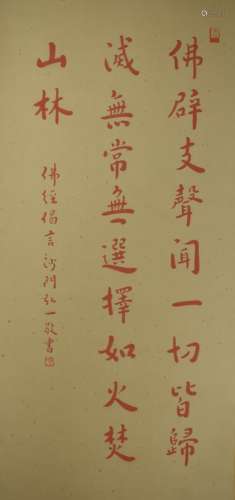 佛辟支聲闻一切皆歸
滅無常無選擇如火焚
山林
佛經偈言沙門弘一敬書